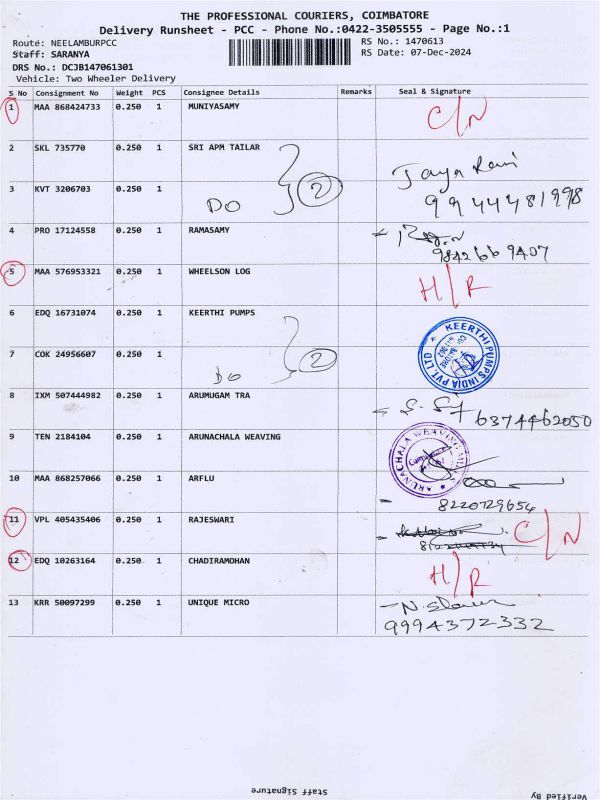 THE PROFESSIONAL COURIERS, COIMBATORE
Delivery Runsheet - PCC - Phone No.:0422-3505555 - Page No.:1
Route: NEELAMBURPCC RS No.: 1470613
Staff: SARANYA RS Date: 07-Dec-2024
DRS No.: DCJB147061301
Vehicle: Two Wheeler Delivery
S No Consignment No Weight PCS Consignee Details Remarks Seal & Signature
1 MAA 868424733 0.250 1 MUNIYASAMY C/N
2 SKL 735770 0.250 1 SRI APM TAILAR
2 Jaya Rani
3 KVT 3206703 0.250 1
DO 9944481998
4 PRO 17124558 0.250 1 RAMASAMY
9842669407
5 MAA 576953321 0.250 1 WHEELSON LOG H/R
6 EDQ 16731074 0.250 1 KEERTHI PUMPS
KEERTHI PUMPS INDIA PVT. LTD
7 COK 24956607 0.250 1 2
DO
8 IXM 507444982 0.250 1 ARUMUGAM TRA
6374462050
9 TEN 2184104 0.250 1 ARUNACHALA WEAVING
ARUNACHALA WEAVING MILLS
10 MAA 868257066 0.250 1 ARFLU
8220729654
11 VPL 405435406 0.250 1 RAJESWARI C/N
12 EDQ 10263164 0.250 1 CHADIRAMOHAN H/R
13 KRR 50097299 0.250 1 UNIQUE MICRO
9994372332
Staff Signature
Verified By